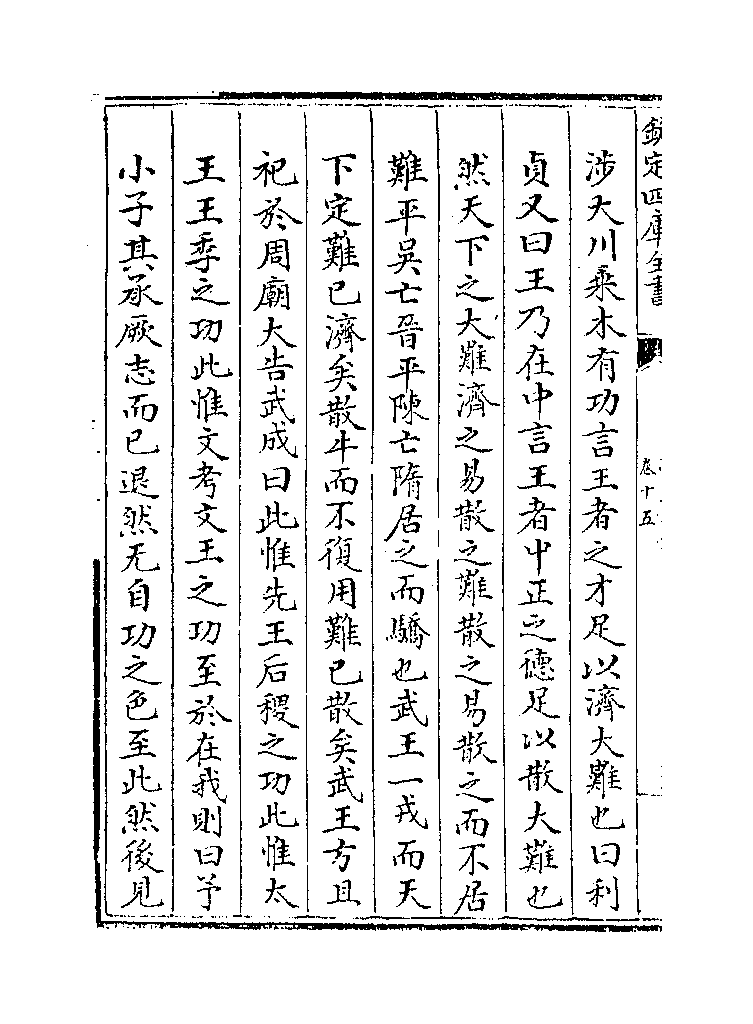 欽定四庫全書
卷十五
涉大川乘木有功言王者之才足以濟大難也曰利
貞又曰王乃在中言王者中正之德足以散大難也
然天下之大難濟之易散之難散之易散之而不居
難平吳亡晉平陳亡隋居之而驕也武王一戎而天
下定難已濟矣散牛而不復用難已散矣武王方且
祀於周廟大告武成曰此惟先王后稷之功此惟太
王王季之功此惟文考文王之功至於在我則曰予
小子其承厥志而已退然无自功之色至此然後見